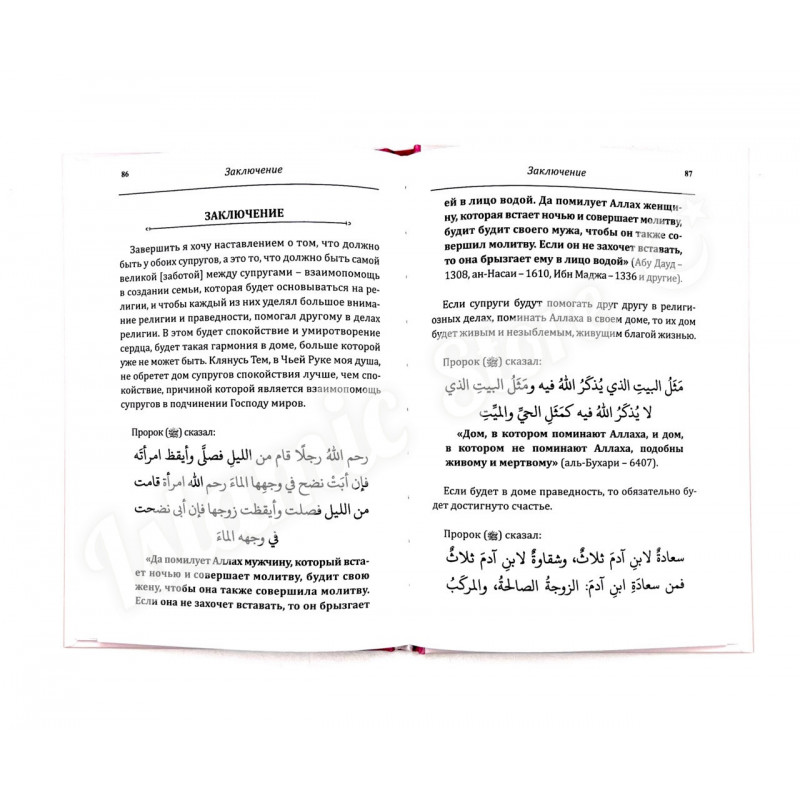 86
Заключение
ЗАКЛЮЧЕНИЕ
Завершить я хочу наставлением о том, что должно
быть у обоих супругов, а это то, что должно быть самой
великой [заботой] между супругами – взаимопомощь
в создании семьи, которая будет основываться на ре-
лигии, и чтобы каждый из них уделял большое внима-
ние религии и праведности, помогал другому в делах
религии. В этом будет спокойствие и умиротворение
сердца, будет такая гармония в доме, больше которой
уже не может быть. Клянусь Тем, в Чьей Руке моя душа,
не обретет дом супругов спокойствия лучше, чем спо-
койствие, причиной которой является взаимопомощь
супругов в подчинении Господу миров.
Пророк (ﷺ) сказал:
رحم اللهُ رجلًا قام من الليلِ فصلَّى وأيقظ امرأتَه
فإن أبَتْ نضح في وجهِها الماءَ رحم الله امرأةً قامت
من الليل فصلت وأيقظت زوجها فإن أبى نضحت
في وجهه الماءَ
«Да помилует Аллах мужчину, который вста-
ет ночью и совершает молитву, будит свою
жену, чтобы она также совершила молитву.
Если она не захочет вставать, то он брызгает
Заключение
87
ей в лицо водой. Да помилует Аллах женщи-
ну, которая встает ночью и совершает молитву,
будит будит своего мужа, чтобы он также со-
вершил молитву. Если он не захочет вставать,
то она брызгает ему в лицо водой» (Абу Дауд –
1308, ан-Насаи – 1610, Ибн Маджа – 1336 и другие).
Если супруги будут помогать друг другу в религи-
озных делах, поминать Аллаха в своем доме, то их дом
будет живым и незыблемым, живущим благой жизнью.
Пророк (ﷺ) сказал:
مَثَلُ البيتِ الذي يُذكَرُ اللهُ فيه ومَثَلُ البيتِ الذي
لا يُذكَرُ اللهُ فيه كمَثَلِ الحيِّ والميِّتِ
«Дом, в котором поминают Аллаха, и дом,
в котором не поминают Аллаха, подобны
живому и мертвому» (аль-Бухари – 6407).
Если будет в доме праведность, то обязательно бу-
дет достигнуто счастье.
Пророк (ﷺ) сказал:
سعادةٌ لابنِ آدمَ ثلاثٌ، وشقاوةٌ لابنِ آدمَ ثلاثٌ
فمن سعادَةِ ابنِ آدمَ: الزوجةُ الصالحةُ، والمركَبُ